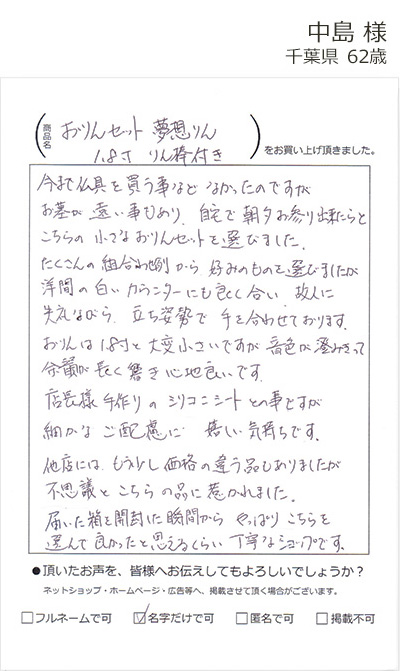 中島 様
千葉県 62歳
商品名
おりんセット 夢想りん
1.8寸 りん棒付き
をお買い上げ頂きました。
今まで仏具を買う事など なかったのですが
お墓が 遠い事もあり、自宅で朝夕お参り出来たらと
こちらの 小さなおりんセットを選びました。
たくさんの組合わせ例から 好みのものを選びましたが
洋間の白いカウンターにも良く合い、故人に
失礼ながら、立ち姿勢で 手を合わせております。
おりんは1.8寸と大変小さいですが 音色が澄みきって
余韻が長く響き心地良いです。
店長様手作りの シリコンシートとの事ですが
細かな ご配慮に 嬉しい気持ちです。
他店には、もう少し価格の違う品もありましたが
不思議と こちらの品に惹かれました。
届いた箱を開封した瞬間から やっぱりこちらを
選んで良かったと思えるくらい 丁寧なショップです。
●頂いたお声を、皆様へお伝えしてもよろしいでしょうか？
ネットショップ・ホームページ・広告等へ、掲載させて頂く場合がございます。
□フルネームで可 ☑名字だけで可 □匿名で可 □掲載不可